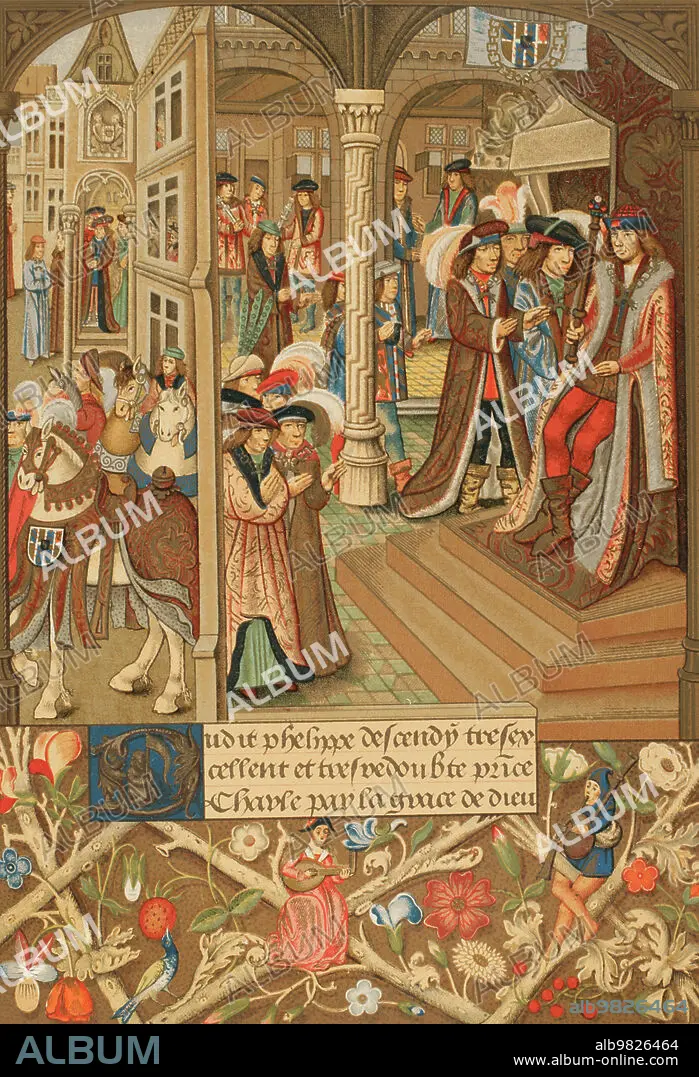 Dudit phelippe descendy tresex
cellent et tresredoubte prince
Charle par la grace de dieu
alb9826464
ALBUM
alb9826464
www.album-online.com